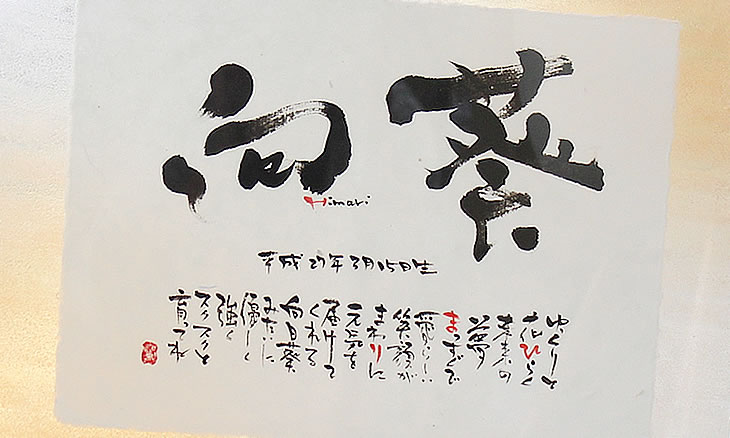 向葵
Himari
平成27年3月15日生
ゆっくりと
花ひらく
未来の
夢
まっすぐで
愛らしい
笑顔が
まわりに
元気を
届けて
くれる
向日葵
みたいに
優しく
強く
スクスクと
育ってね